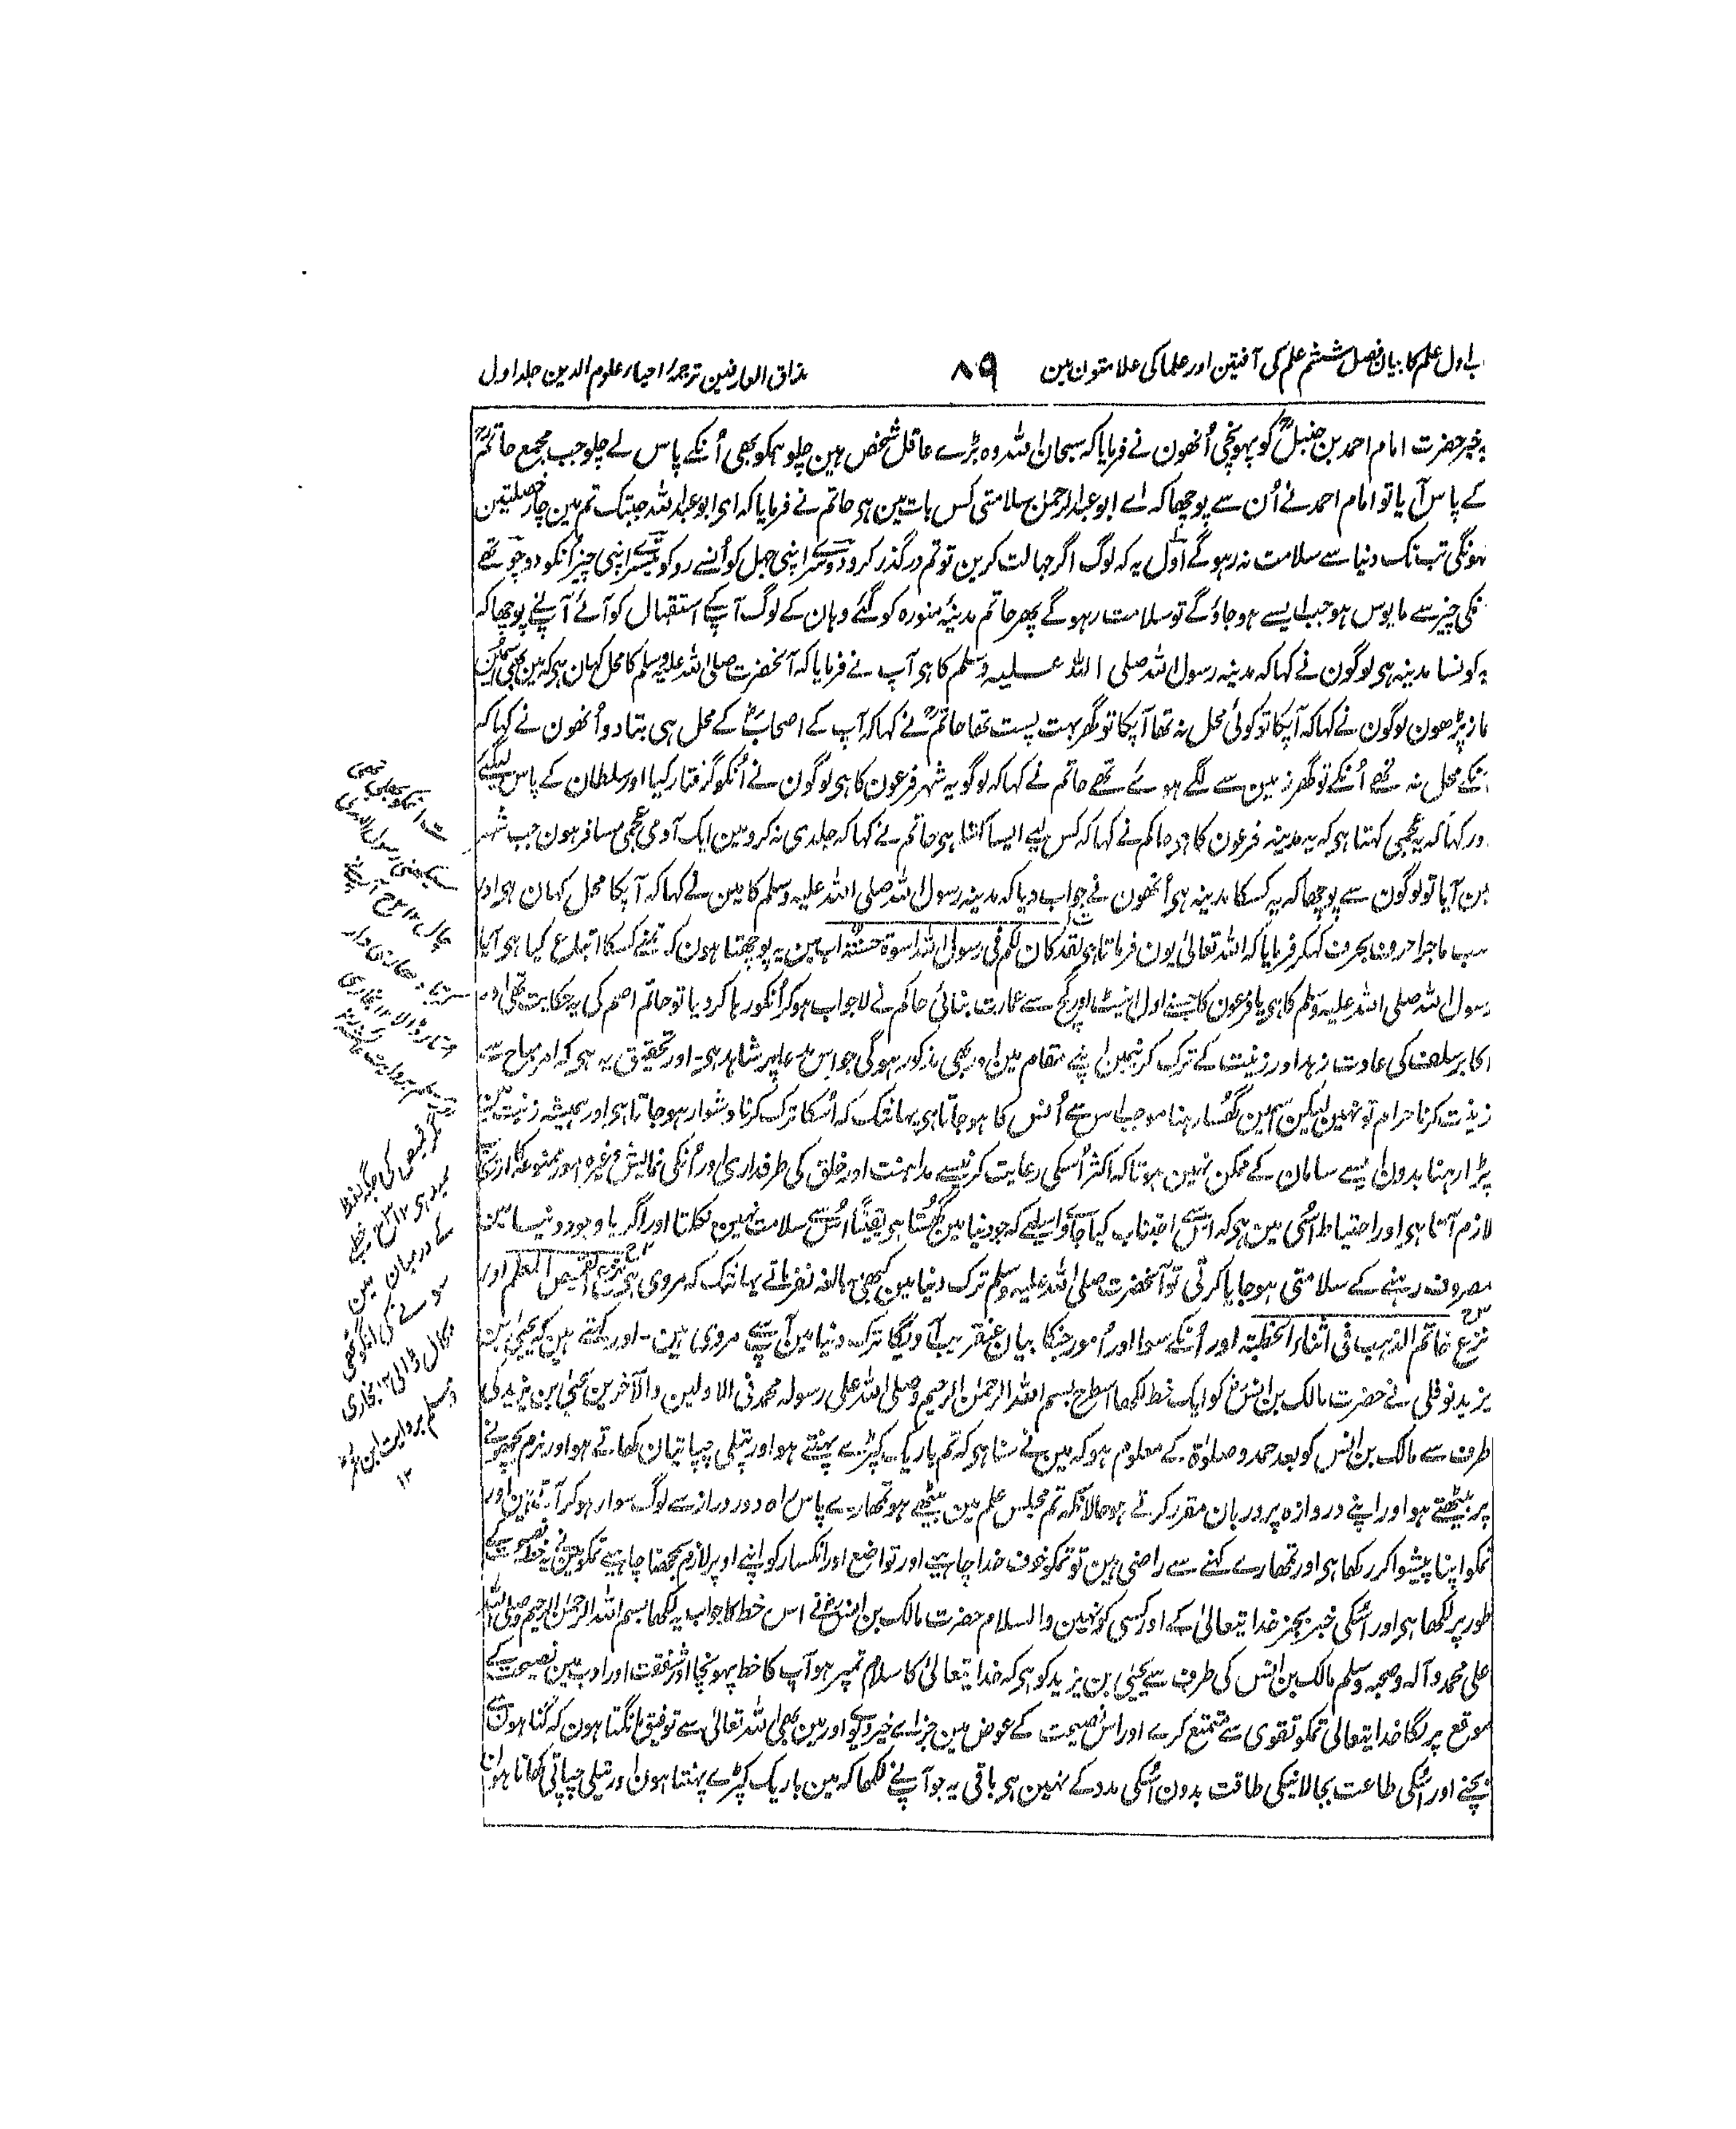 باب اول علم کا بیان فصل ششم علم کی آفتین اور علما کی علامتون مین
۸۹
مذاق العارفین ترجمۂ احیاء علوم الدین جلد اول
یہ خبر حضرت امام احمد بن حنبلؒ کو پہونچی اُنھون نے فرمایا کہ سبحان اللہ وہ بڑے عاقل شخص ہین چلو ہمکو بھی اُنکے پاس لے چلو جب مجمع حاتمؒ
کے پاس آیا تو امام احمد نے اُن سے پوچھا کہ اے ابو عبدالرحمٰن سلامتی کس بات مین ہی حاتم نے فرمایا کہ ای ابو عبد اللہ جبتک تم مین چار خصلتین
نہونگی تب تک دنیا سے سلامت نہ رہو گے اول یہ کہ لوگ اگر جہالت کرین تو تم درگذر کرو دوسرے اپنی جہل کو اُنسے روکو تیسرے اپنی چیز اُنکو دو چوتھے
اُنکی چیز سے مایوس ہو جب ایسے ہو جاؤ گے تو سلامت رہو گے پھر حاتم مدینۂ منورہ کو گئے وہان کے لوگ آپکے استقبال کو آئے آپنے پوچھا کہ
یہ کونسا مدینہ ہی لوگون نے کہا کہ مدینہ رسول اللہ صلی اللہ علیہ وسلم کا ہی آپ نے فرمایا کہ آنحضرت صلی اللہ علیہ وسلم کا محل کہان ہی کہ مین بھی
نماز پڑھون لوگون نے کہا کہ آپکا تو کوئی محل نہ تھا آپکا تو گھر بہت پست تھا حاتمؒ نے کہا کہ آپ کے اصحابؓ کے محل ہی بتا دو اُنھون نے کہا کہ
اُنکے محل نہ تھے اُنکے تو گھر زمین سے لگے ہوئے تھے حاتم نے کہا کہ لوگو یہ شہر فرعون کا ہی لوگون نے اُنکو گرفتار کیا اور سلطان کے پاس لیگئے
اور کہا کہ یہ عجمی کہتا ہی کہ یہ مدینہ فرعون کا ہی حاکم نے کہا کہ کس لیے ایسا کہتا ہی حاتم نے کہا کہ جلدی نہ کرو مین ایک آدمی عجمی مسافر ہون جب شہر
مین آیا تو لوگون سے پوچھا کہ یہ کسکا مدینہ ہی اُنھون نے جواب دیا کہ مدینہ رسول اللہ صلی اللہ علیہ وسلم کا مین نے کہا کہ آپکا محل کہان ہی اور
سب ماجرا حرف بحرف کہکر فرمایا کہ اللہ تعالیٰ یون فرماتا ہی لقد کان لکم فی رسول اللہ اسوۃ حسنۃ اب مین یہ پوچھتا ہون کہ تمنے کسکا اتباع کیا ہی آیا
رسول اللہ صلی اللہ علیہ وسلم کا ہی یا فرعون کا جسنے اول اینٹ اور گچ سے عمارت بنائی حاکم نے لاجواب ہو کر اُنکو رہا کر دیا تو حاتم اصم کی یہ حکایت تھی اور
اکابر سلف کی عادت زہد اور زینت کے ترک کرنیمین اپنے مقام مین اور بھی مذکور ہوگی جو اس مدعا پر شاہد ہی اور تحقیق یہ ہی کہ امر مباح سے
زینت کرنا حرام تو نہین لیکن اُسمین گھُسا رہنا موجب اس سے اُنس کا ہو جاتا ہی یہانتک کہ اُسکا ترک کرنا دشوار ہو جاتا ہی اور ہمیشہ زینت مین
پڑا رہنا بدون ایسے سامان کے ممکن نہین ہوتا کہ اکثر اُسکی رعایت کرنیسے مداہنت اور خلق کی طرفداری اور اُنکی نمایش وغیرہ امور ممنوعہ کا ارتکاب
لازم آتا ہی اور احتیاط اسی مین ہی کہ اُس سے اجتناب کیا جاوے اسلیے کہ جو دنیا مین گھُستا ہی یقیناً اُس سے سلامت نہین نکلتا اور اگر باوجود دنیا مین
مصروف رہنے کے سلامتی ہو جایا کرتی تو آنحضرت صلی اللہ علیہ وسلم ترک دنیا مین کبھی مبالغہ نفرماتے یہانتک کہ مروی ہی نزع القمیص المعلم اور
نزع خاتم الذہب فی اثناء الخطبۃ اور اُنکے سوا اور اُمور جنکا بیان عنقریب آویگا ترک دنیا مین آپسے مروی ہین۔ اور کہتے ہین کہ یحییٰ بن
یزید نوفلی نے حضرت مالک بن انسؓ کو ایک خط لکھا اسطرح بسم اللہ الرحمٰن الرحیم وصلی اللہ علی رسولہ محمد فی الاولین والآخرین یحییٰ بن یزید کی
طرف سے مالک بن انس کو بعد حمد و صلوٰۃ کے معلوم ہو کہ مین نے سنا ہی کہ تم باریک کپڑے پہنتے ہو اور پتلی چپاتیان کھاتے ہو اور نرم بچھونے
پر بیٹھتے ہو اور اپنے دروازہ پر دربان مقرر کرتے ہو حالانکہ تم مجلس علم مین بیٹھے ہو تمھارے پاس راہ دور دراز سے لوگ سوار ہو کر آتے ہین اور
تمکو اپنا پیشوا کر رکھا ہی اور تمھارے کہنے سے راضی ہین تو تمکو خوف خدا چاہیے اور تواضع اور انکسار کو اپنے اوپر لازم سمجھنا چاہیے تمکو مین نے یہ خط نصیحت کے
طور پر لکھا ہی اور اُسکی خبر بجز خدا یتعالیٰ کے اور کسی کو نہین والسلام حضرت مالک بن انسؓ نے اس خط کا جواب یہ لکھا بسم اللہ الرحمٰن الرحیم وصلی اللہ
علی محمد وآلہ وصحبہ وسلم مالک بن انس کی طرف سے یحییٰ بن یزید کو ہی کہ خدا یتعالیٰ کا سلام تمپر ہو آپ کا خط پہونچا اور شفقت اور ادب مین نصیحت کے
موقع پر لگا خدا یتعالیٰ تمکو تقوی سے متمتع کرے اور اس نصیحت کے عوض مین جزاے خیر دیوے اور مین بھی اللہ تعالیٰ سے توفیق مانگتا ہون کہ گناہون سے
بچنے اور اُسکی طاعت بجا لانیکی طاقت بدون اُسکی مدد کے نہین ہی باقی یہ جو آپنے لکھا کہ مین باریک کپڑے پہنتا ہون اور پتلی چپاتی کھاتا ہون
کے درمیان مین
سونے کی انگوٹھی
نکال ڈالی ۱۲ بخاری
ومسلم بروایت ابن عمرؓ
۱۲